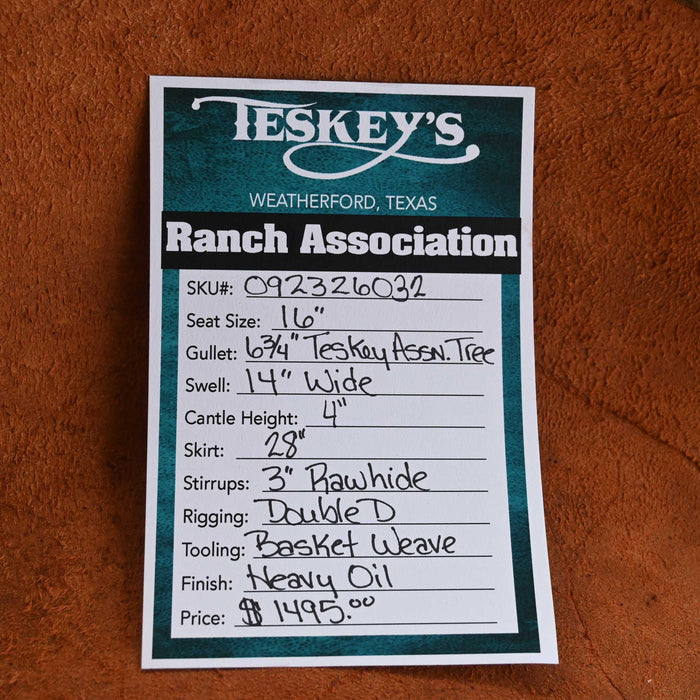 TESKEY'S
WEATHERFORD, TEXAS
Ranch Association
SKU#: 092326032
Seat Size: 16"
Gullet: 6¾" Teskey Assn. Tree
Swell: 14" Wide
Cantle Height: 4"
Skirt: 28"
Stirrups: 3" Rawhide
Rigging: Double D
Tooling: Basket Weave
Finish: Heavy Oil
Price: $1495.00